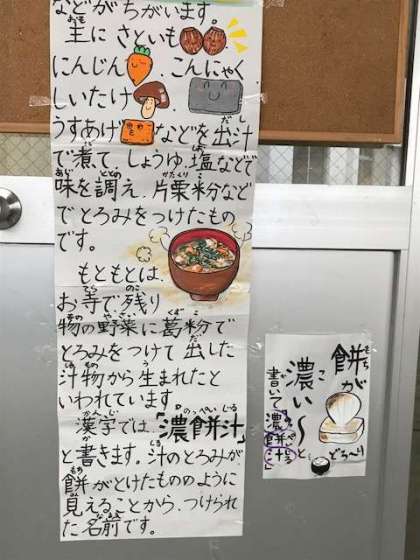 などがちがいます。
主に さといも
にんじん こんにゃく
しいたけ
うすあげ などを出汁
で煮て、しょうゆ、塩などで
味を調え、片栗粉など
でとろみをつけたもの
です。
もともとは、
お寺で残り
物の野菜に葛粉で
とろみをつけて出した
汁物から生まれたと
いわれています。
漢字では、「濃餅汁」
と書きます。汁のとろみが、
餅がとけたもののように
見えることから、つけられ
た名前です。
餅が
濃い〜と
書いて「濃餅汁」